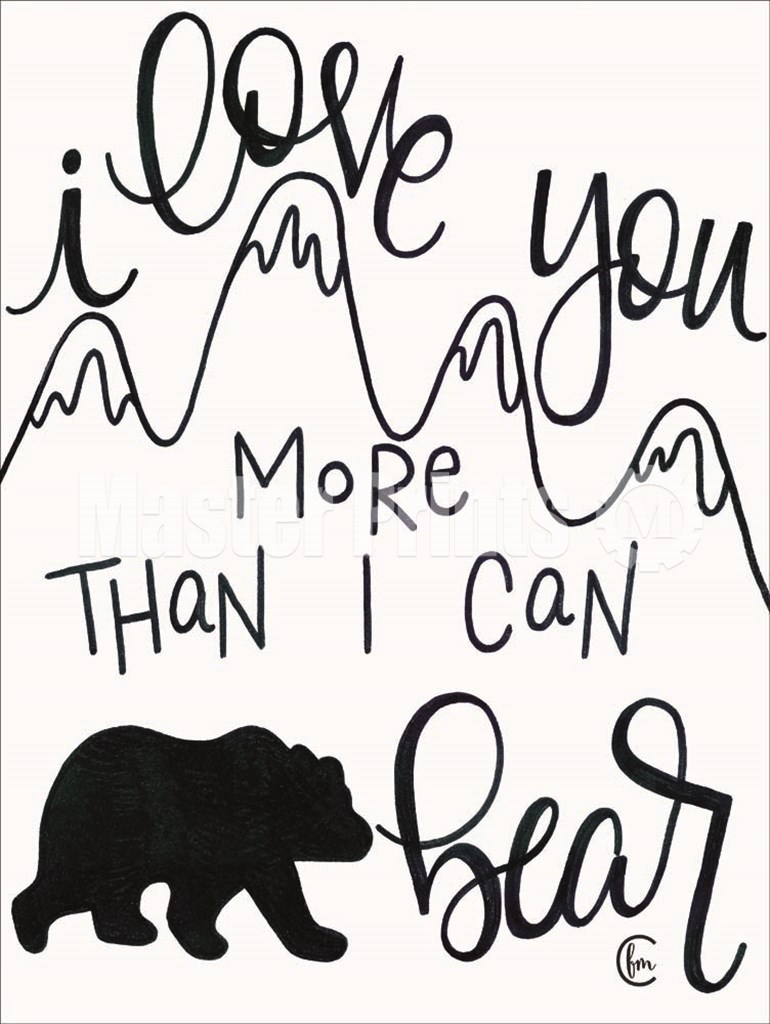 i love you
MoRe
THaN I CaN
bear
Master Prints M
fm